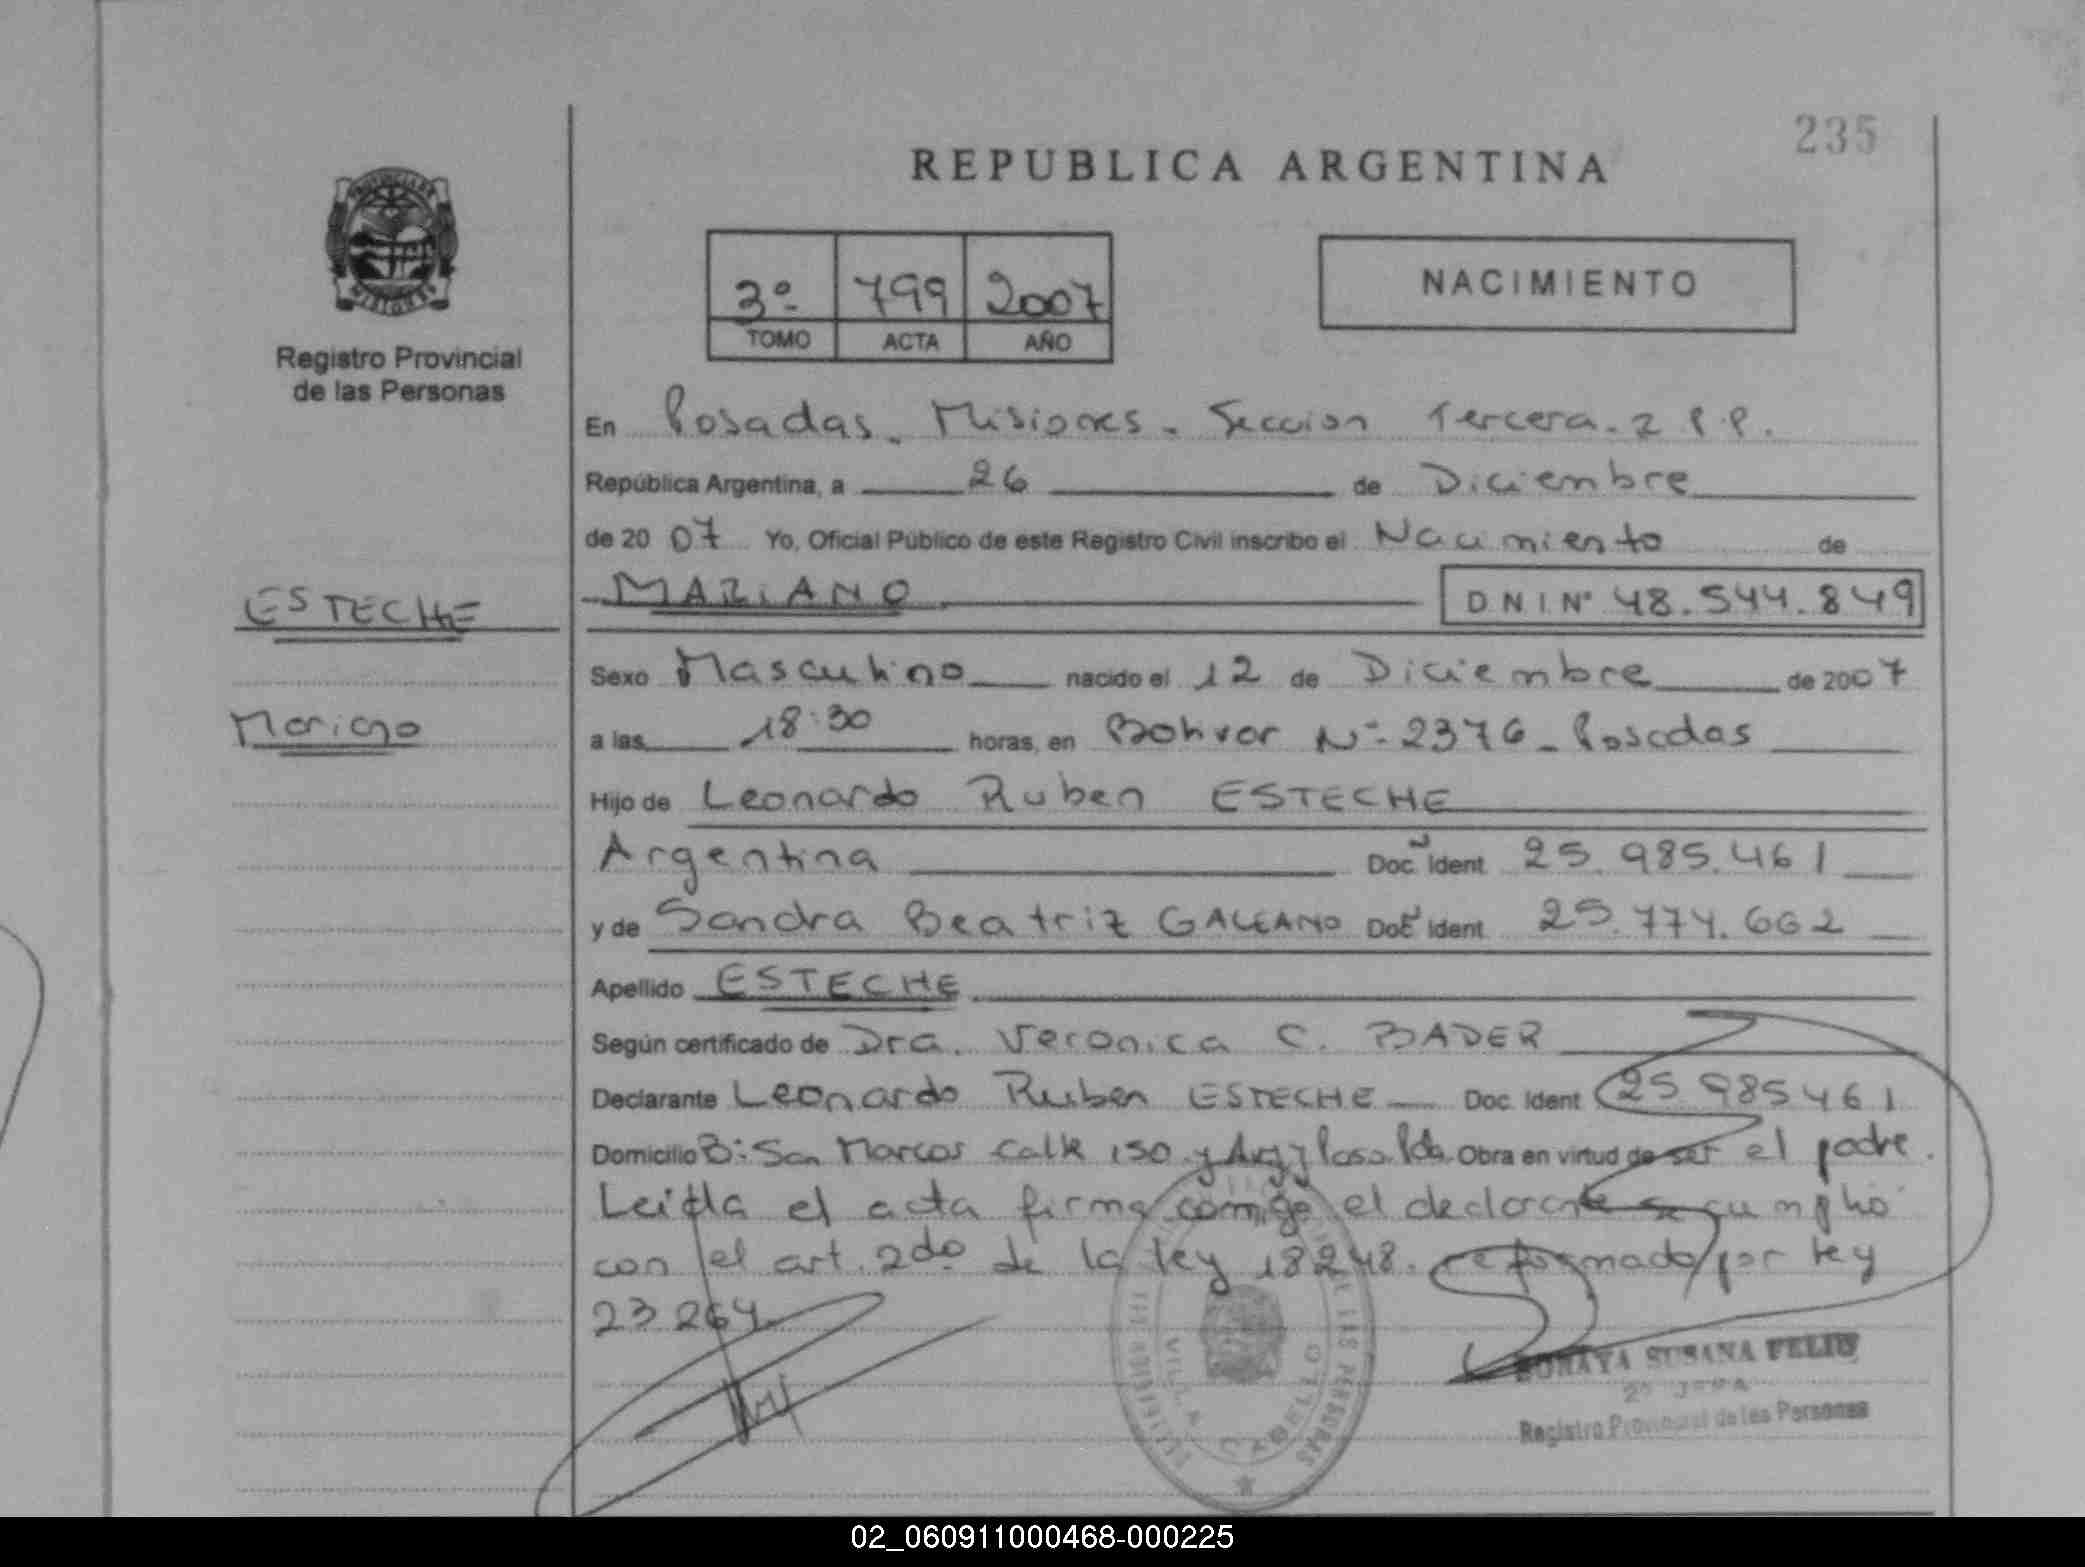 235
REPUBLICA ARGENTINA
NACIMIENTO
3º 799 2007
TOMO ACTA AÑO
PROVINCIA DE
MISIONES
Registro Provincial
de las Personas
En Posadas. Misiones. Seccion Tercera. 2 P.P.
República Argentina, a 26 de Diciembre
de 2007 Yo, Oficial Público de este Registro Civil inscribo el Nacimiento de
MARIANO DNI Nº 48.544.849
ESTECHE
Sexo Masculino nacido el 12 de Diciembre de 2007
Mariano
a las 18:30 horas, en Bolivar Nº 2376 - Posadas
Hijo de Leonardo Ruben ESTECHE
Argentina Doc. Ident. 25.985.461
y de Sandra Beatriz GALEANO Doc. Ident. 25.774.662
Apellido ESTECHE
Según certificado de Dra. Veronica C. BADER
Declarante Leonardo Ruben ESTECHE Doc. Ident. 25 985 461
Domicilio Bº San Marcos calle 150 y Obra en virtud de ser el padre.
Leida el acta firma comigo el declarante se cumplio
con el art. 2do de la ley 18248. reformado por ley
23 264.
SORAYA SUSANA FELIU
Registro Provincial de las Personas
DE LAS PERSONAS
VILLA CABELLO
02_060911000468-000225